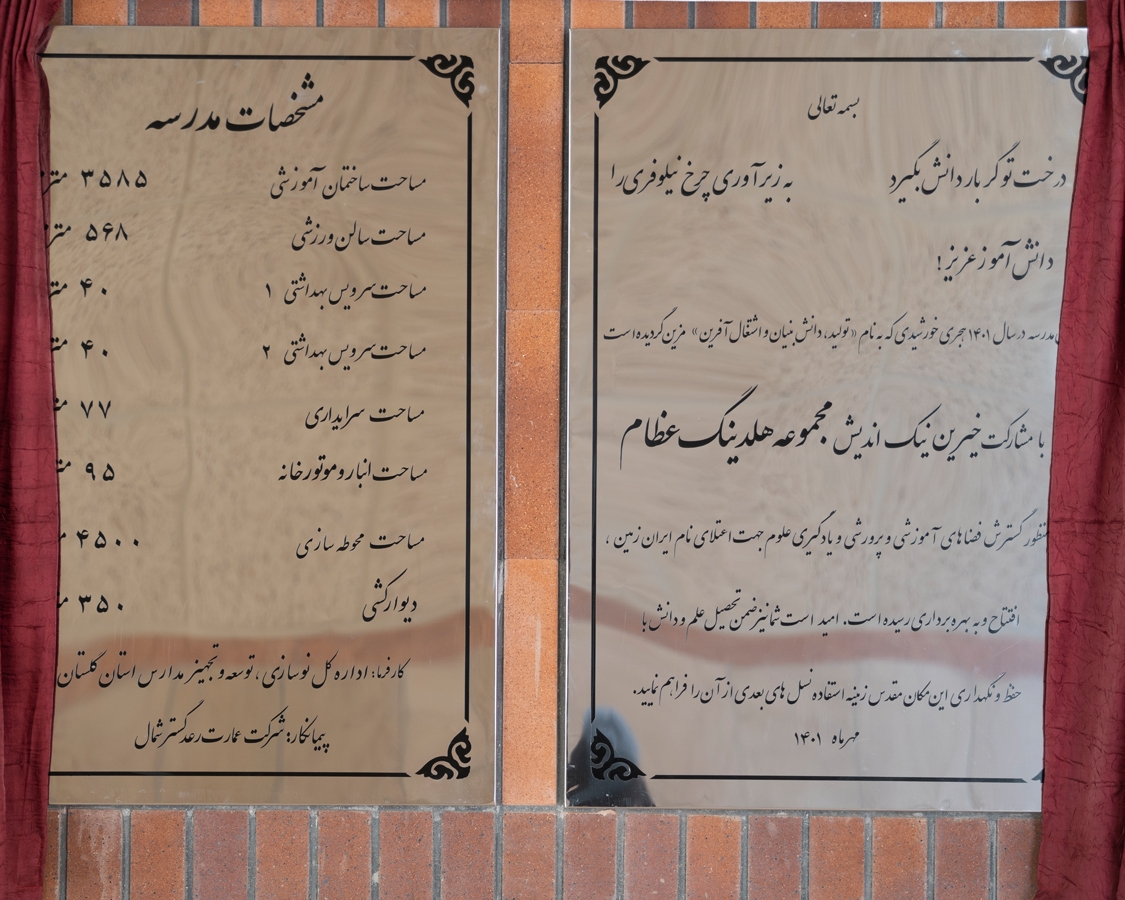 بسمه تعالی
درخت تو گر بار دانش بگیرد به زیر آوری چرخ نیلوفری را
دانش آموز عزیز!
مدرسه در سال ۱۴۰۱ هجری خورشیدی که به نام «تولید، دانش بنیان و اشتغال آفرین» مزین گردیده است
با مشارکت خیرین نیک اندیش مجموعه هلدینگ عظام
منظور گسترش فضاهای آموزشی و پرورشی و یادگیری علوم جهت اعتلای نام ایران زمین ،
افتتاح و به بهره برداری رسیده است. امید است شما نیز ضمن تحصیل علم و دانش با
حفظ و نگهداری این مکان مقدس زمینه استفاده نسل های بعدی از آن را فراهم نمایید.
مهرماه ۱۴۰۱
مشخصات مدرسه
مساحت ساختمان آموزشی ۳۵۸۵ متر
مساحت سالن ورزشی ۵۶۸ متر
مساحت سرویس بهداشتی ۱ ۴۰ متر
مساحت سرویس بهداشتی ۲ ۴۰
مساحت سرایداری ۷۷
مساحت انبار و موتورخانه ۹۵
مساحت محوطه سازی ۴۵۰۰
دیوارکشی ۳۵۰
کارفرما: اداره کل نوسازی ، توسعه و تجهیز مدارس استان گلستان
پیمانکار: شرکت عمارت رعد گستر شمال